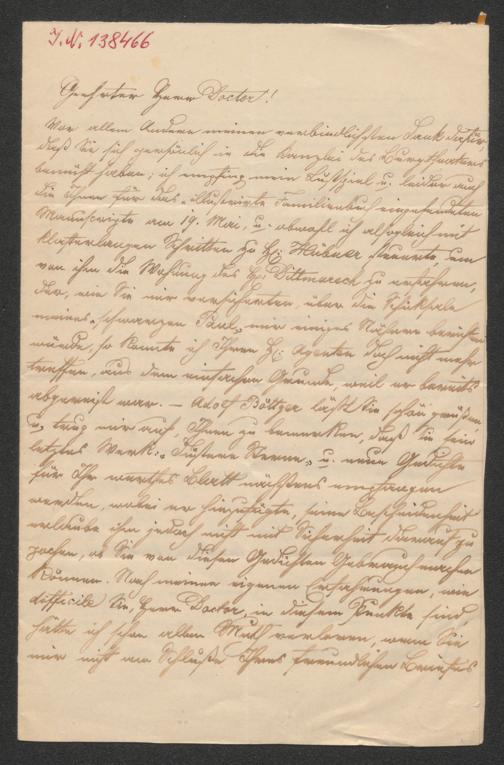 I.N. 138466
Geehrter Herr Doctor!
Vor allem Andern meinen verbindlichsten Dank dafür,
daß Sie sich persönlich in die Kanzlei des Burgtheaters
bemüht haben; ich empfing mein Lustspiel u. leider auch
die Ihnen für das „illustrirte Familienbuch“ eingesendeten
Manuscripte am 19. Mai, u. obwohl ich alsogleich mit
klafterlangen Schritten zu H: Hübner steuerte um
von ihm die Wohnung des H: Dittmarsch zu erfahren,
der, wie Sie mir versicherten, über die Schicksale
meines „schwarzen Paul“ mir einiges Nähere berichten
würde, so konnte ich Ihren H: Agenten doch nicht mehr
treffen, aus dem einfachen Grunde, weil er bereits
abgereist war. — Adolf Böttger läßt Sie schön grüßen
u. trug mir auf, Ihnen zu bemerken, daß Sie sein
letztes Werk: „Düstere Sterne“ u. neue Gedichte
für Ihr werthes Blatt nächstens empfangen
werden, wobei er hinzufügte, seine Bescheidenheit
erlaube ihm jedoch nicht mit Sicherheit darauf zu
pochen, ob Sie von diesen Gedichten Gebrauch machen
können. Nach meinen eigenen Erfahrungen, wie
difficile Sie, Herr Doctor, in diesem Punkte sind,
hätte ich schon allen Muth verloren, wenn Sie
mir nicht am Schluße Ihres freundlichen Briefes